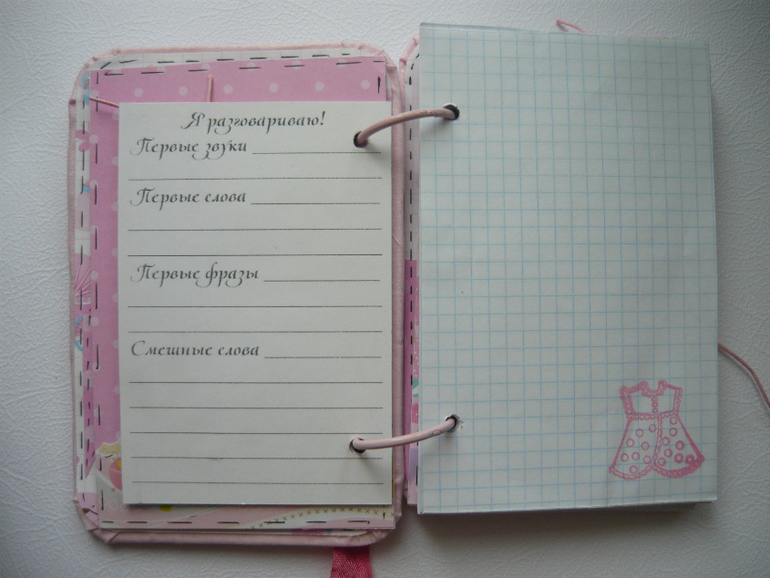 Я разговариваю!
Первые звуки
Первые слова
Первые фразы
Смешные слова